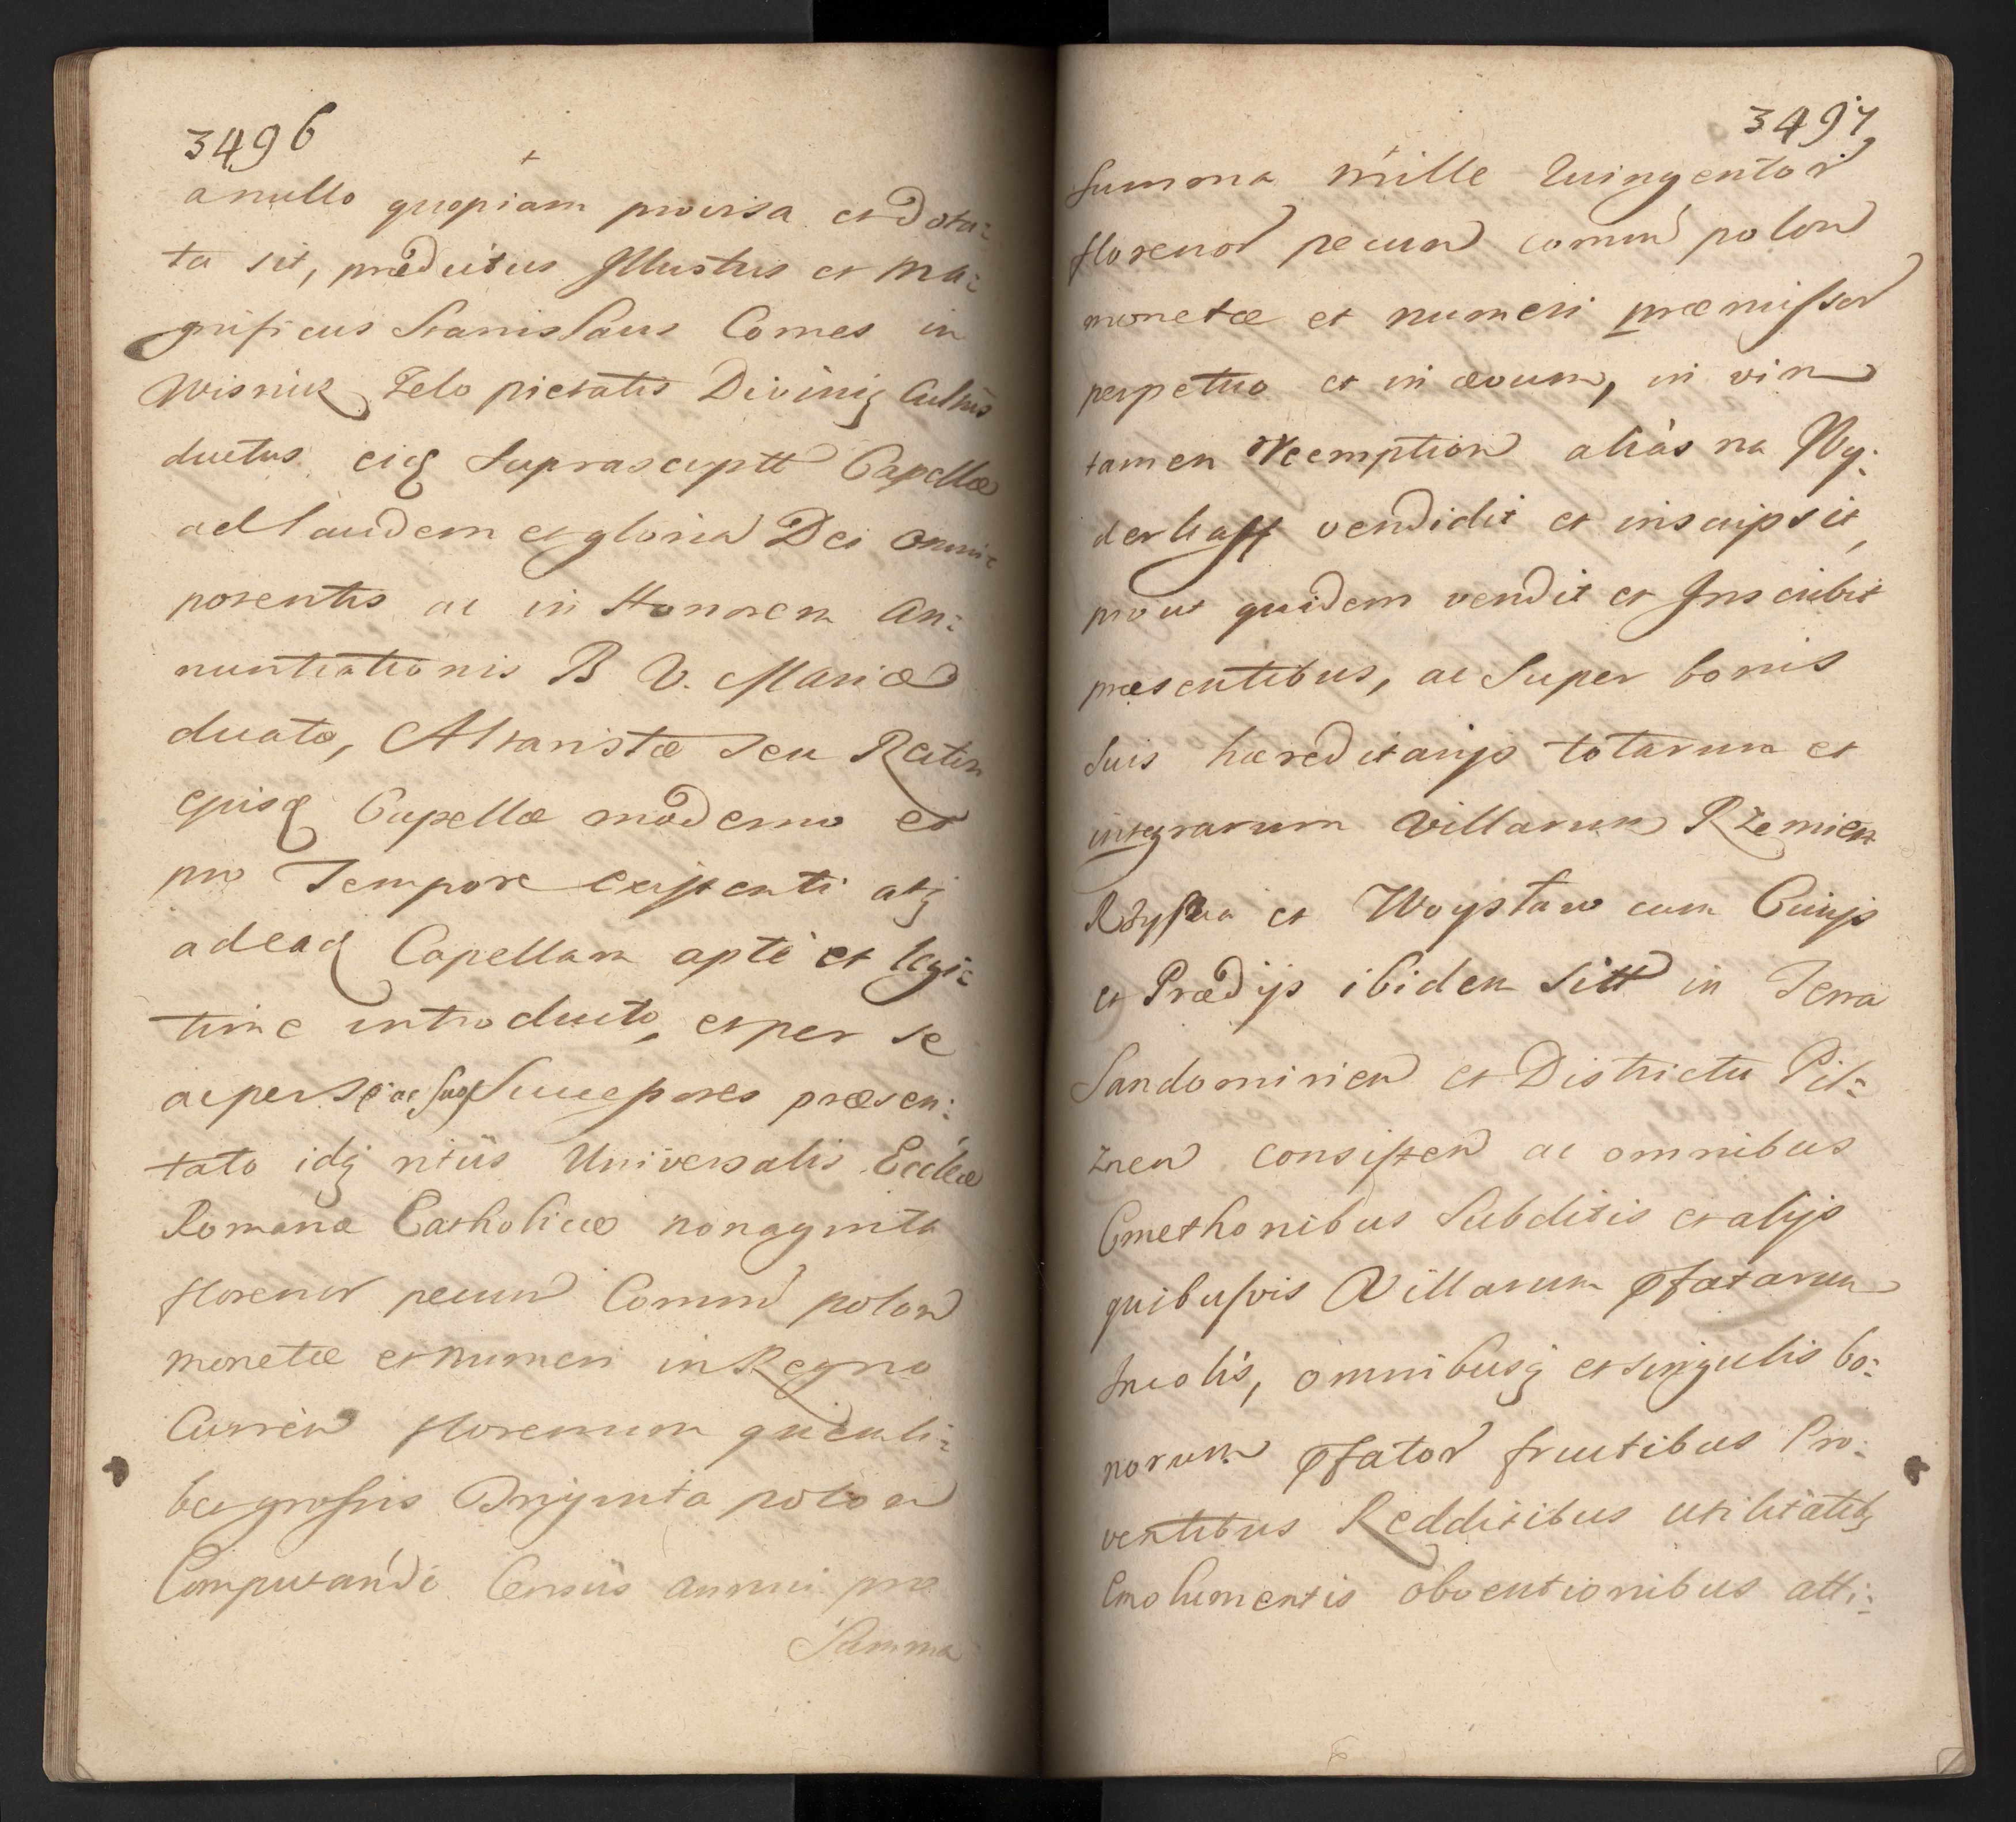 3496
a nullo quopiam provisa et dota:
ta sit, præditus Illustris et Ma:
gnificus Stanislaus Comes in
Wisnicz Zelo pietatis Diviniq Cultus
ductus eidq Suprascriptt Capellæ
ad laudem et gloria Dei Omni:
potentis ac in Honorem An:
nuntiationis B V. Mariæ
ducata, Altaristæ seu Rectori
ejusq Capellæ moderno et
pro Tempore existenti atq
ad eaq Capellam apte et legi:
time introducto, et per se
ac per se ac suos Successores præsen:
tato idq ritus Universalis Ecclæ
Romanæ Catholicæ nonaginta
florenor pecun Commu polon
monetæ et numeri in Regno
Curren florenum quemli:
bet grossis Triginta polon
Computandi Census annui pro
Summa
3497
Summa mille Quingentor
florenor pecun commu polon
monetæ et numeri præmissor
perpetuo et in ævum, in vim
tamen reemption alias na Wy:
derkaff vendidit et inscripsit,
prout quidem vendit et Inscribit
præsentibus, ac Super bonis
Suis hæreditarijs totarum et
integrarum Villarum Rzemien
Rdyska et Woystaw cum Curijs
et Prædijs ibidem Sitt in Terra
Sandomirien et Districtu Pil:
znen consisten ac omnibus
Cmethonibus Subditis et alijs
quibusvis Villarum pfatarum
Incolis, omnibusq et singulis bo:
norum pfator fructibus Pro:
ventibus Redditibus utilitatibq
Emolumentis obventionibus atti: